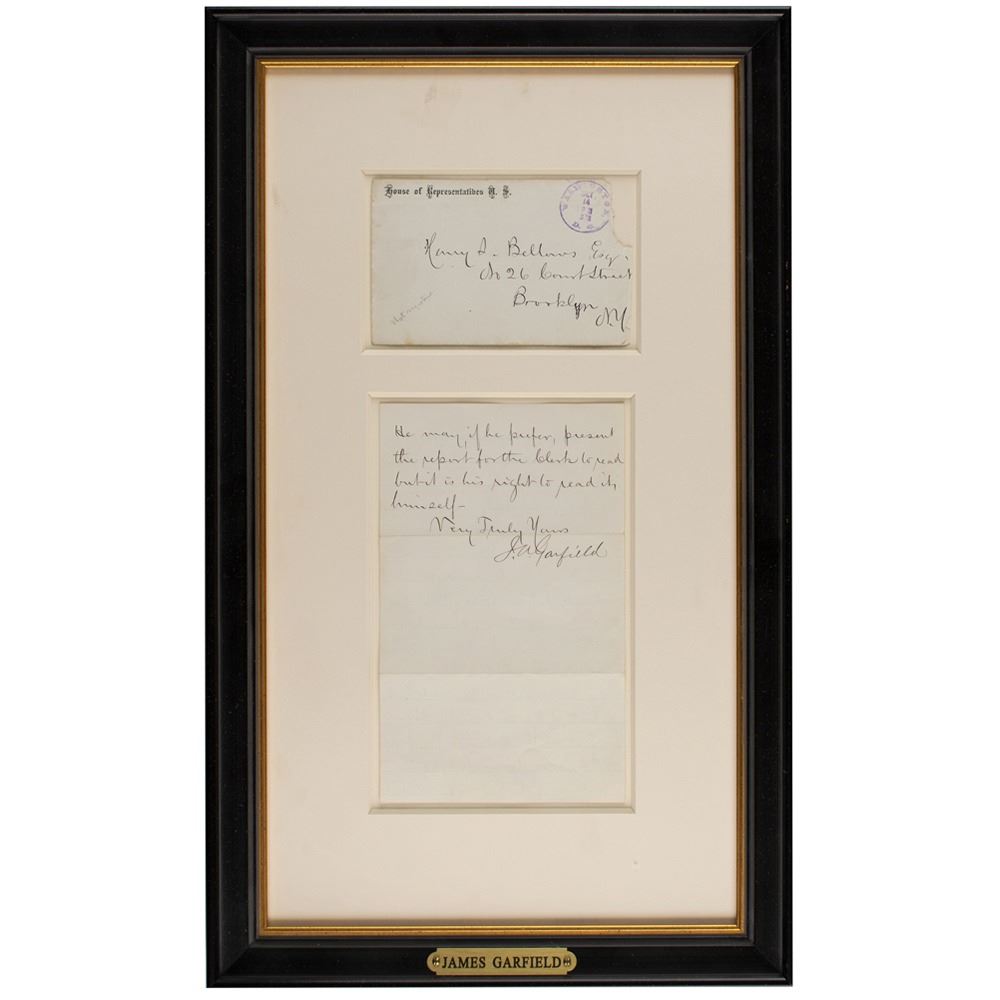 House of Representatives U. S.
WASHINGTON
14
D. C.
Henry I. Bellows Esq.
No 26 Court Street
Brooklyn
N.Y.
He may, if he prefer, present
the report for the Clerk to read
but it is his right to read it,
himself—
Very Truly Yours
J. A. Garfield
JAMES GARFIELD